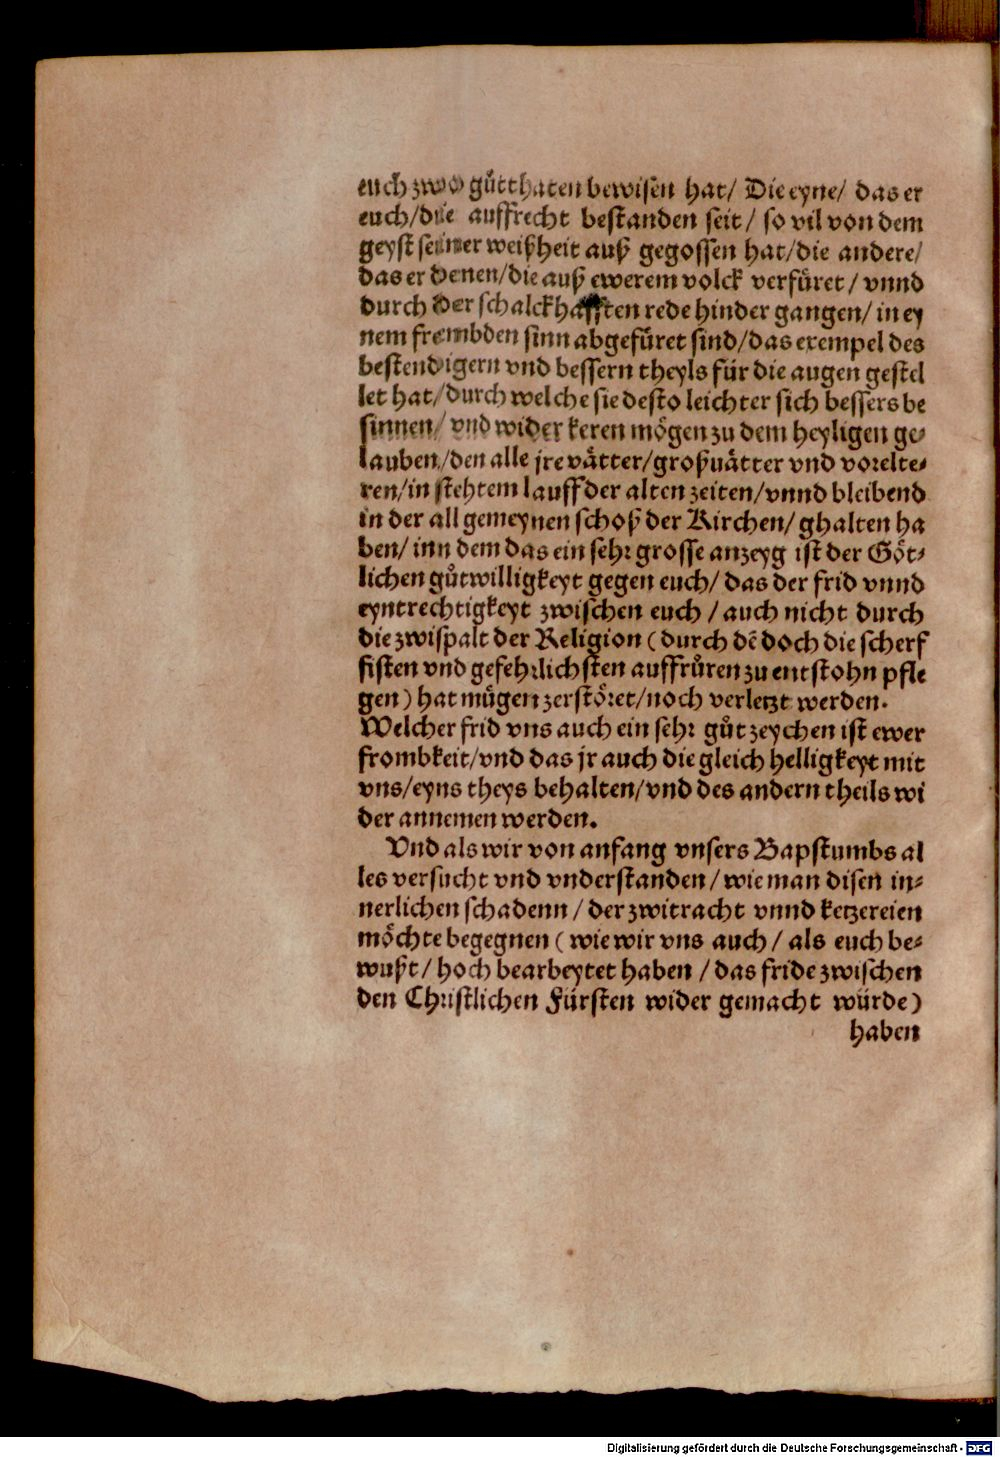 euch zwo gůtthaten bewisen hat/ Die eyne/ das er
euch/die auffrecht bestanden seit/ so vil von dem
geyst seiner weißheit auß gegossen hat/die andere/
das er denen/die auß ewerem volck verfüret/ vnnd
durch der schalckhafften rede hinder gangen/ in ey
nem frembden sinn abgefüret sind/das exempel des
bestendigern vnd bessern theyls für die augen gestel
let hat/durch welche sie desto leichter sich bessers be
sinnen/ vnd wider keren mögen zu dem heyligen ge⸗
lauben/den alle jre vätter/großuätter vnd vorelte⸗
ren/in stehtem lauff der alten zeiten/vnnd bleibend
in der all gemeynen schoß der Kirchen/ ghalten ha
ben/ inn dem das ein sehr grosse anzeyg ist der Göt⸗
lichen gůtwilligkeyt gegen euch/ das der frid vnnd
eyntrechtigkeyt zwischen euch / auch nicht durch
die zwispalt der Religion (durch dē doch die scherf
fisten vnd gefehrlichsten auffrůren zu entstohn pfle
gen) hat mügen zerstöret/noch verletzt werden.
Welcher frid vns auch ein sehr gůt zeychen ist ewer
frombkeit/vnd das jr auch die gleich helligkeyt mit
vns/eyns theys behalten/vnd des andern theils wi
der annemen werden.
Vnd als wir von anfang vnsers Bapstumbs al
les versucht vnd vnderstanden/ wie man disen in⸗
nerlichen schadenn / der zwitracht vnnd ketzereien
möchte begegnen ( wie wir vns auch/ als euch be⸗
wußt/ hoch bearbeytet haben / das fride zwischen
den Christlichen Fürsten wider gemacht würde)
haben
Digitalisierung gefördert durch die Deutsche Forschungsgemeinschaft - DFG